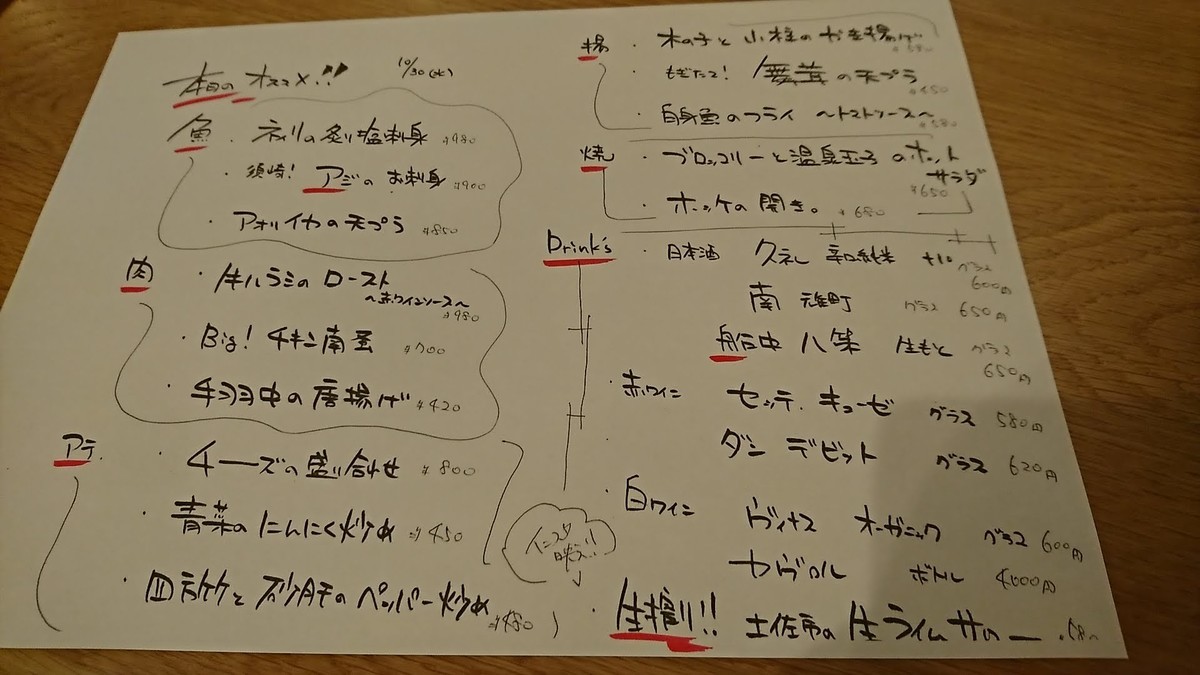 本日のオススメ!!
10/30(水)
魚
・ネイリの炙り塩刺身 ¥980
・須崎! アジのお刺身 ¥900
・アオリイカの天プラ ¥850
肉
・牛ハラミのロースト
～赤ワインソース～
¥980
・Big! チキン南蛮 ¥700
・手羽中の唐揚げ ¥420
アテ
・チーズの盛り合わせ ¥800
・青菜のにんにく炒め ¥450
・四方竹と砂肝のペッパー炒め
¥480
揚
・木の子と小柱のかき揚げ
¥580
・もぎたて! 舞茸の天プラ
¥450
・白身魚のフライ ～トマトソース～
¥580
焼
・ブロッコリーと温泉玉子のホット
サラダ
¥650
・ホッケの開き。 ¥680
Drink's
・日本酒 久礼 辛口純米 +10 グラス
600円
南 グラス 650円
船中八策 生もと グラス
650円
・赤ワイン センテ.キューゼ グラス 580円
ダン デビット グラス 620円
・白ワイン ドヴィナス オーガニック グラス 600円
カヴロル ボトル 4000円
インスタ
映え!!
・生搾り!! 土佐市の生ライムサワー